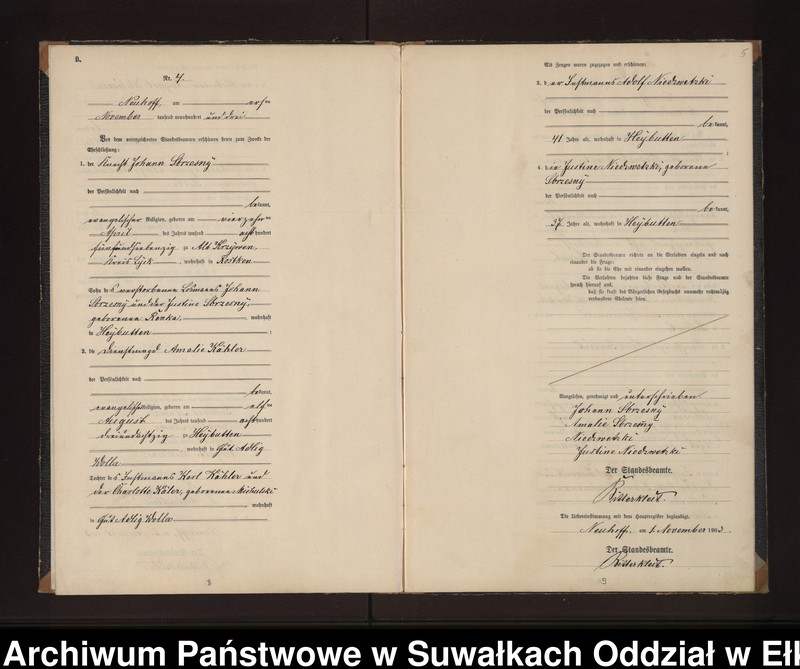 B.
Nr. 4.
Neuhoff, am ersten
November tausend neunhundert und drei
Vor dem unterzeichneten Standesbeamten erschienen heute zum Zwecke der
Eheschließung:
1. der Knecht Johann Sbrzesny
der Persönlichkeit nach
be kannt,
evangelischer Religion, geboren am vierzehnten
April des Jahres tausend acht hundert
fünfundsiebenzig zu Alt Krzywen,
Kreis Lyck, wohnhaft in Rostken
Sohn des verstorbenen Losmanns Johann
Sbrzesny und der Justine Sbrzesny,
geborenen Konka, wohnhaft
in Heybutten;
2. die Dienstmagd Amalie Kähler
der Persönlichkeit nach
be kannt,
evangelischer Religion, geboren am elften
August des Jahres tausend acht hundert
dreiundachtzig zu Heybutten
, wohnhaft in Gut Adlig
Wolla
Tochter des Instmanns Karl Kähler und
der Charlotte Kähler, geborenen
wohnhaft
in Gut Adlig Wolla
8
5
Als Zeugen waren zugezogen und erschienen:
3. der Instmann Adolf Niedzwetzki
der Persönlichkeit nach
be kannt,
41 Jahre alt, wohnhaft in Heybutten
;
4. die Justine Niedzwetzki, geborene
Sbrzesny
der Persönlichkeit nach
be kannt,
37 Jahre alt, wohnhaft in Heybutten
Der Standesbeamte richtete an die Verlobten einzeln und nach
einander die Frage:
ob sie die Ehe mit einander eingehen wollen.
Die Verlobten bejahten diese Frage und der Standesbeamte
sprach hierauf aus,
daß sie kraft des Bürgerlichen Gesetzbuchs nunmehr rechtmäßig
verbundene Eheleute seien.
Vorgelesen, genehmigt und unterschrieben
Johann Sbrzesny
Amalie Sbrzesny
Niedzwetzki
Justine Niedzwetzki
Der Standesbeamte.
Die Uebereinstimmung mit dem Hauptregister beglaubigt.
Neuhoff, am 1. November 1903.
Der Standesbeamte.
9
Archiwum Państwowe w Suwałkach Oddział w Eł